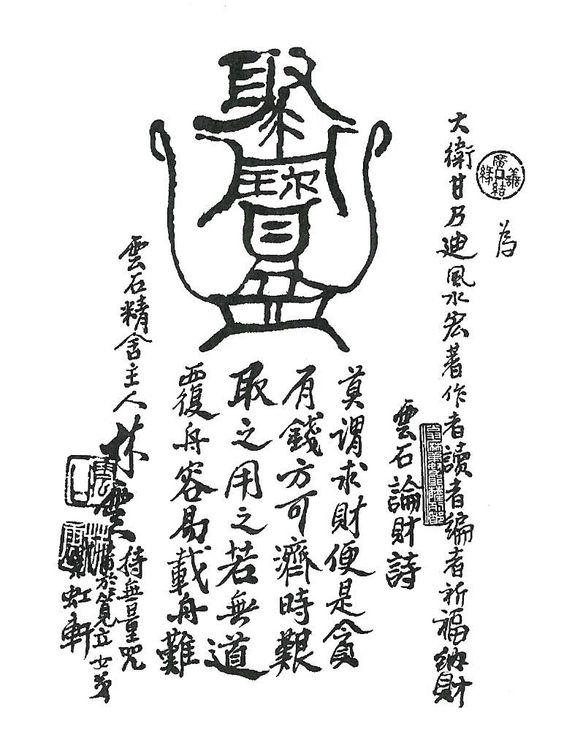 為
大衛甘乃迪風水宏著作者讀者編者祈福納財
聚寶盆
雲石論財詩
莫謂求財便是貪
有錢方可濟時艱
取之用之若無道
覆舟容易載舟難
雲石精舍主人
林雲
持無量咒
虹軒